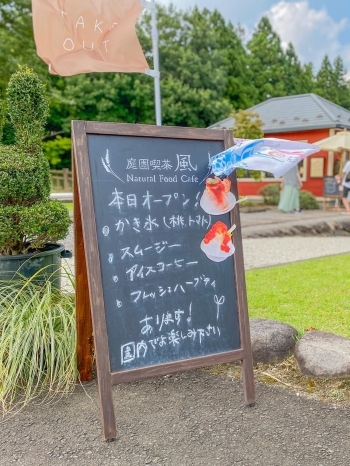 TAKE
OUT
庭園喫茶 風
Natural Food Cafe
本日オープン!
かき氷(桃,トマト)
スムージー
アイスコーヒー
フレッシュハーブティ
あります!
園内でお楽しみ下さい